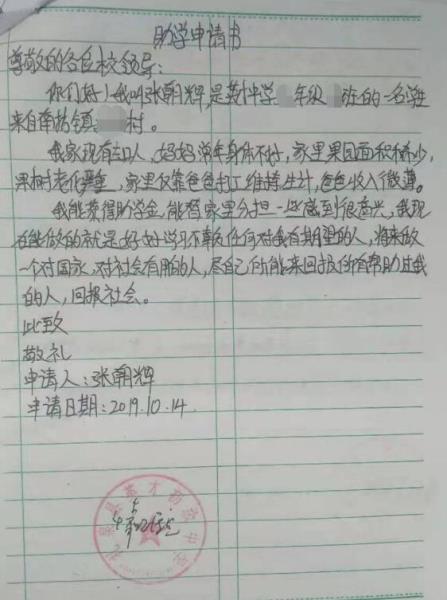 助学申请书
尊敬的各位校领导:
你们好!我叫张朝辉,是 中学 年级 班的一名学生
来自南坊镇 村。
我家现有 口人,妈妈常年身体不好,家里果园面积不多,
果树老化严重,家里仅靠爸爸打工维持生计,爸爸收入很微薄。
我能获得助学金,能替家里分担一些感到很高兴,我现
在能做的就是好好学习不辜负任何对我有期望的人,将来做
一个对国家,对社会有用的人,尽自己所能来回报所有帮助过我
的人,回报社会。
此致
敬礼
申请人:张朝辉
申请日期:2019.10.14